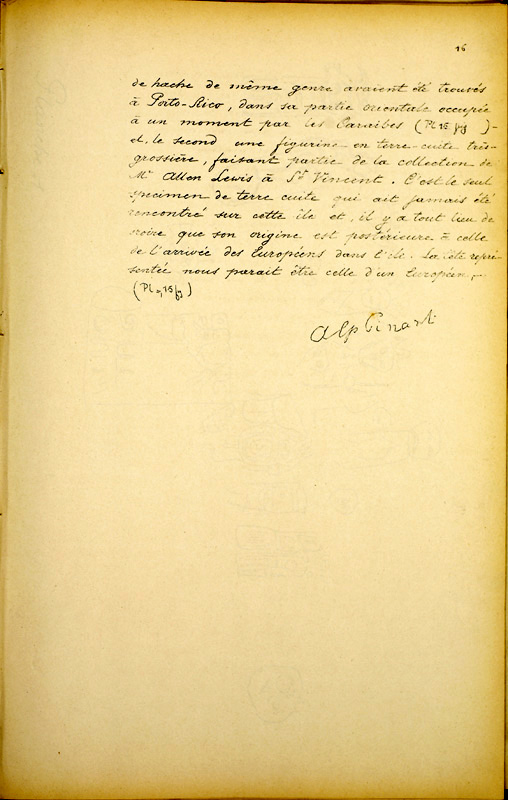 16
de hache de même genre avaient été trouvés
à Porto-Rico, dans sa partie orientale occupée
à un moment par les Caraibes (Pl 15 fig )-
et, le second une figurine en terre-cuite très
grossière, faisant partie de la collection de
Mr Allen Lewis à St Vincent. C'est le seul
specimen de terre cuite qui ait jamais été
rencontré sur cette île et, il y a tout lieu de
croire que son origine est postérieure à celle
de l'arrivée des Européens dans l'île. La tête repré-
sentée nous parait être celle d'un Européen,-
(Pl , 15 fig )
Alp Pinart